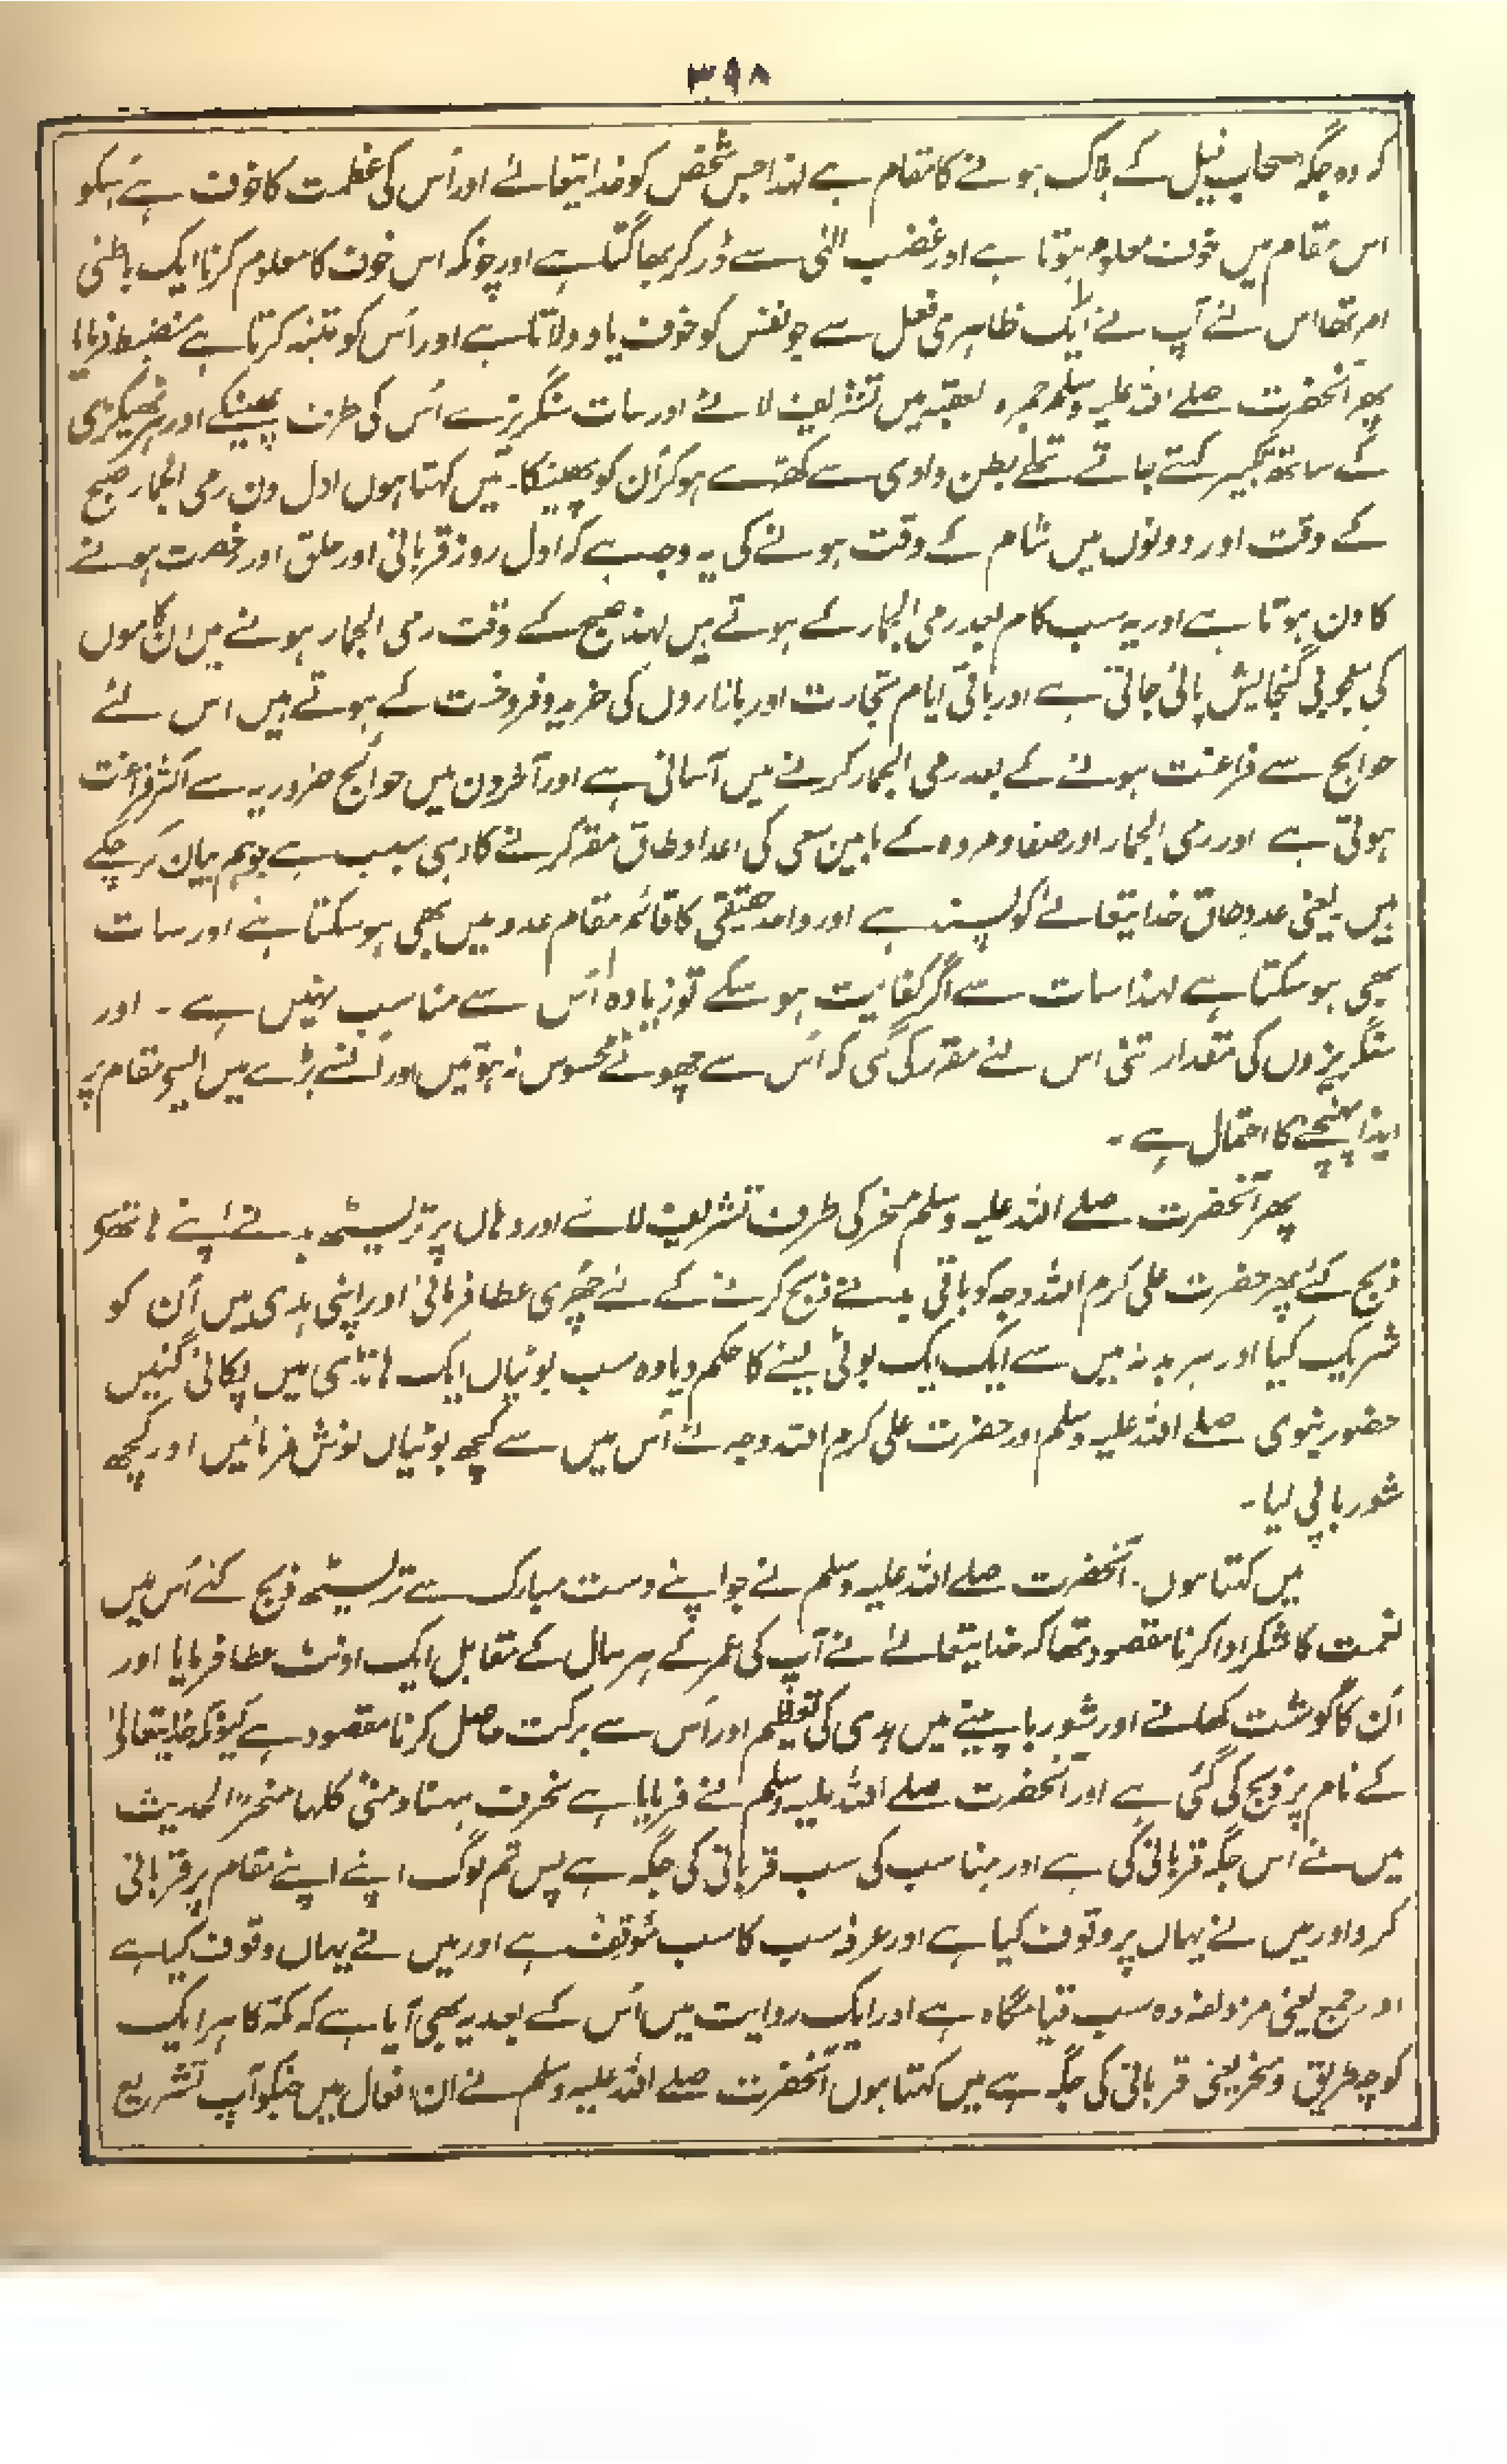 ۳۹۸
کہ وہ جگہ اصحاب فیل کے ہلاک ہونے کا مقام ہے لہذا جس شخص کو خدا یتعالےٰ اور اُس کی عظمت کا خوف ہے اُسکو
اس مقام میں خوف معلوم ہوتا ہے اور غضب الٰہی سے ڈر کر بھاگتا ہے اور چونکہ اس خوف کا معلوم کرنا ایک باطنی
امر تھا اس لئے آپ نے ایک ظاہری فعل سے جو نفس کو خوف یاد دلاتا ہے اور اُس کو متنبہ کرتا ہے منضبط فرمایا
پھر آنحضرت صلے اللہ علیہ وسلم جمرہ لعقبہ میں تشریف لائے اور سات سنگریزے اُس کی طرف پھینکے اور ہر ٹھیکری
کے ساتھ تکبیر کہتے جاتے تھے بطن وادی سے کھڑے ہو کر اُن کو پھینکا۔ میں کہتا ہوں اول دن رمی الجمار صبح
کے وقت اور دونوں میں شام کے وقت ہونے کی یہ وجہ ہے کہ اول روز قربانی اور حلق اور رخصت ہونے
کا دن ہوتا ہے اور یہ سب کام بعد رمی الجمار کے ہوتے ہیں لہذا صبح کے وقت رمی الجمار ہونے میں ان کاموں
کی بخوبی گنجایش پائی جاتی ہے اور باقی ایام تجارت اور بازاروں کی خرید و فروخت کے ہوتے ہیں اس لئے
حوایج سے فراغت ہونے کے بعد رمی الجمار کرنے میں آسانی ہے اور آخر دن میں حوائج ضروریہ سے اکثر فراغت
ہوتی ہے اور رمی الجمار اور صفا و مروہ کے مابین سعی کی اعداد طاق مقرر کرنے کا وہی سبب ہے جو ہم بیان کر چکے
ہیں۔ یعنی عدد طاق خدا یتعالےٰ کو پسند ہے اور واحد حقیقی کا قائم مقام عدد میں بھی ہو سکتا ہے اور سات
بھی ہو سکتا ہے لہذا سات سے اگر کفایت ہو سکے تو زیادہ اُس سے مناسب نہیں ہے ۔ اور
سنگریزوں کی مقدار تنی اس لئے مقرر کی گئی کہ اُس سے چھوٹے محسوس نہ ہوتیں اور اُنسے بڑے میں ایسے مقام پر
ایذا پہنچنے کا احتمال ہے ۔
پھر آنحضرت صلے اللہ علیہ وسلم منحر کی طرف تشریف لائے اور وہاں پر تریسٹھ بدنے اپنے ہاتھ سے
ذبح کئے پھر حضرت علی کرم اللہ وجہ کو باقی بدنے ذبح کرنے کے لئے چھُری عطا فرمائی اور اپنی ہدی میں اُن کو
شریک کیا اور ہر بدنہ میں سے ایک ایک بوٹی لینے کا حکم دیا وہ سب بوٹیاں ایک ہانڈی میں پکائی گئیں
حضور نبوی صلے اللہ علیہ وسلم اور حضرت علی کرم اللہ وجہ نے اُس میں سے کچھ بوٹیاں نوش فرمائیں اور کچھ
شوربا پی لیا۔
میں کہتا ہوں۔ آنحضرت صلے اللہ علیہ وسلم نے جو اپنے دست مبارک سے تریسٹھ ذبح کئے اُس میں
نعمت کا شکر ادا کرنا مقصود تھا کہ خدا یتعالےٰ نے آپ کی عمر کے ہر سال کے مقابل ایک اونٹ عطا فرمایا اور
اُن کا گوشت کھانے اور شوربا پینے میں ہدی کی تعظیم اور اُس سے برکت حاصل کرنا مقصود ہے کیونکہ خدا یتعالیٰ
کے نام پر ذبح کی گئی ہے اور آنحضرت صلے اللہ علیہ وسلم نے فرمایا ہے نحرت ہہنا و منیٰ کلہا منحر" الحدیث
میں نے اس جگہ قربانی کی ہے اور منا سب کی سب قربانی کی جگہ ہے پس تم لوگ اپنے اپنے مقام پر قربانی
کرو اور میں نے یہاں پر وقوف کیا ہے اور عرفہ سب کا سب مَوْقِف ہے اور میں نے یہاں وقوف کیا ہے
اور جمع یعنی مزدلفہ وہ سب قیامگاہ ہے اور ایک روایت میں اُس کے بعد یہ بھی آیا ہے کہ مکہ کا ہر ایک
کوچہ طریق و منحر یعنی قربانی کی جگہ ہے میں کہتا ہوں آنحضرت صلے اللہ علیہ وسلم نے ان افعال میں جنکو آپ تشریع